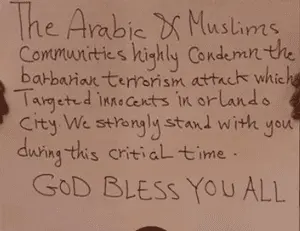 The Arabic & Muslims
Communities highly Condemn the
barbarian terrorism attack which
Targeted innocents in orlando
City We strongly stand with you
during this critical time.
GOD BLESS YOU ALL